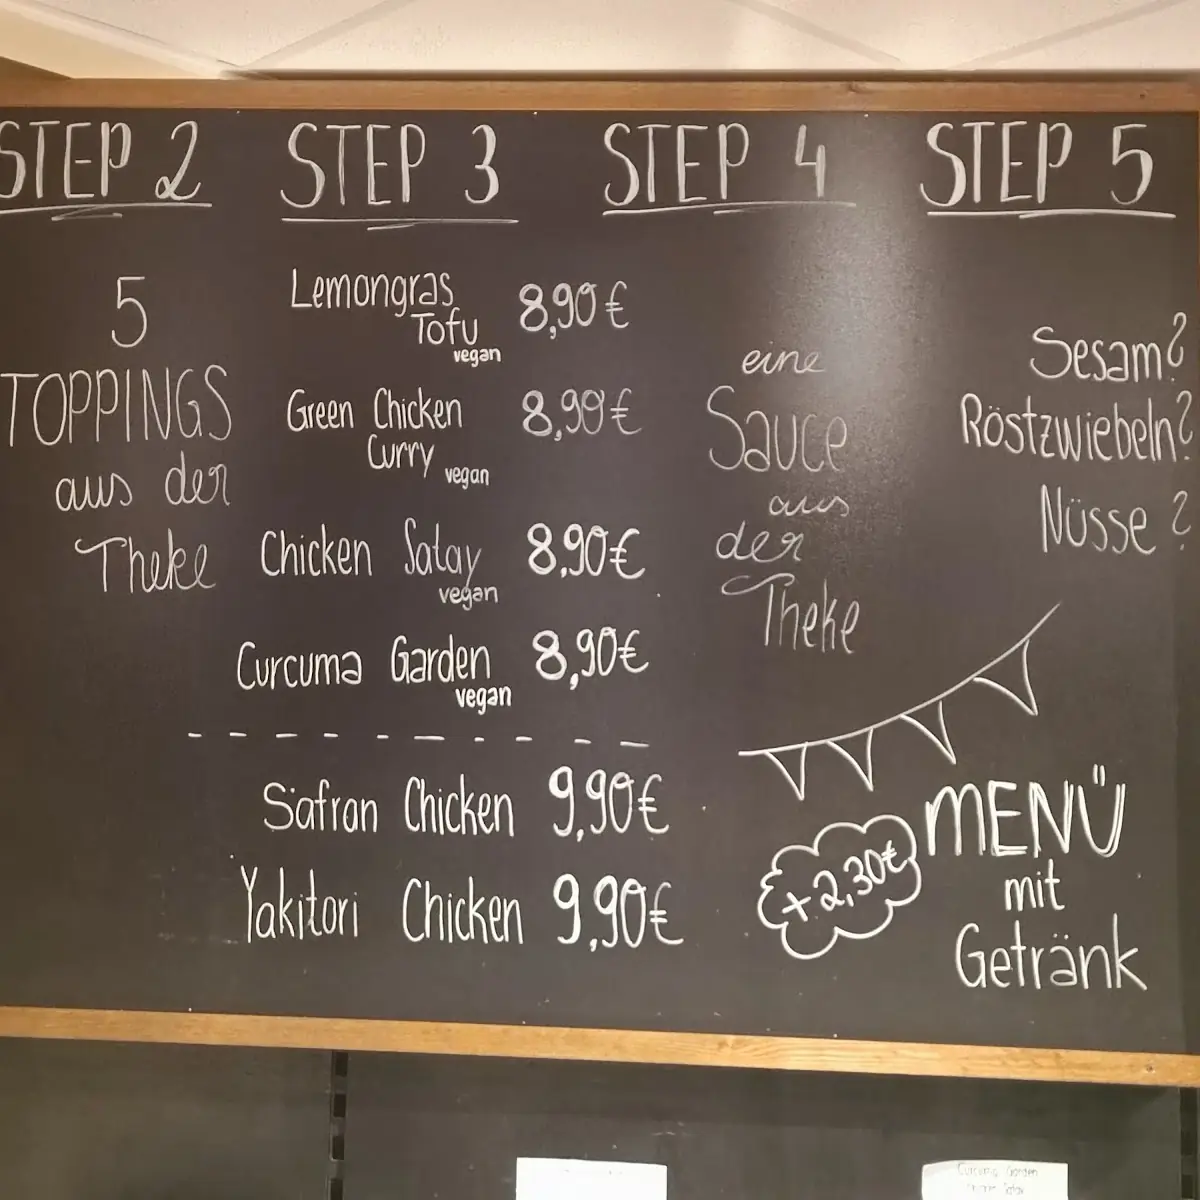 STEP 2
5
TOPPINGS
aus der
Theke
STEP 3
Lemongras
Tofu
vegan
8,90€
Green Chicken
Curry
vegan
8,90€
Chicken Satay 8,90€
vegan
Curcuma Garden 8,90€
vegan
Safran Chicken 9,90€
Yakitori Chicken 9,90€
STEP 4
eine
Sauce
aus
der
Theke
STEP 5
Sesam?
Röstzwiebeln?
Nüsse?
+2,30€
MENÜ
mit
Getränk
Curcuma Garden